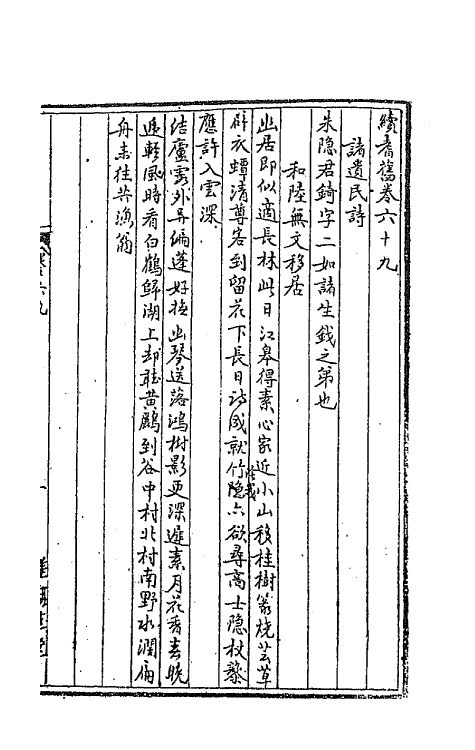 續耆舊卷六十九
諸遺民詩
朱隐君錡字二如諸生鉞之弟也
和陸無文移居
幽居即似適長林此日江皋得素心家近小山移桂樹篆烧芸草
辟衣蟫清尊客到留花下長日詩成就竹隐亦欲尋高士隐杖藜
應許入雲深
结廬雲外异編蓬好枕幽琴送落鴻樹影更深遲素月花香春晚
逗軽風時看白鶴歸湖上却聼黄鸝到谷中村北村南野水濶扁
舟未往共漁翁